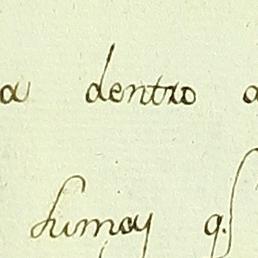 a dentro a
sumay q.